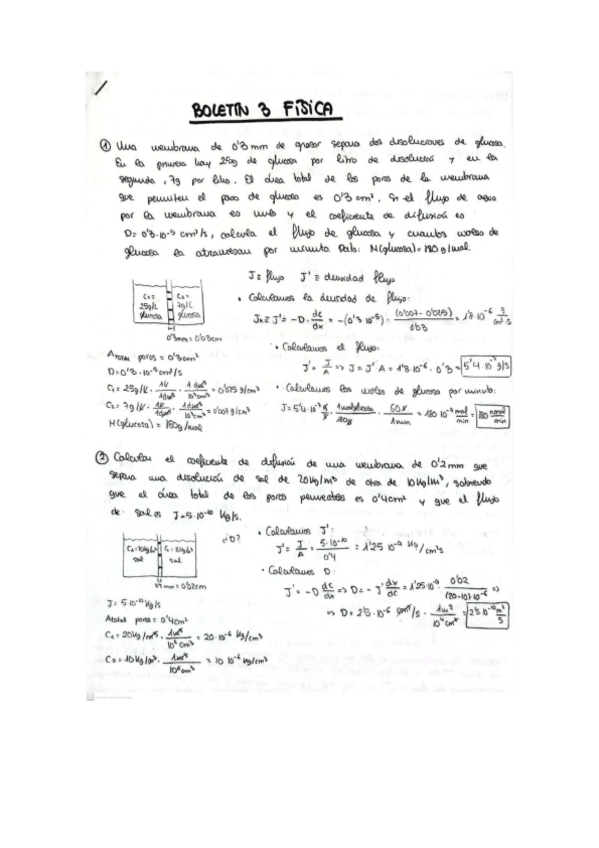 BOLETÍN 3 FÍSICA
① Una membrana de 0'3 mm de grosor separa dos disoluciones de glucosa.
En la primera hay 25g de glucosa por litro de disolución y en la
segunda, 7g por litro. El área total de los poros de la membrana
que permiten el paso de glucosa es 0'3 cm². Si el flujo de agua
por la membrana es nulo y el coeficiente de difusión es
D=0'3·10⁻⁵ cm²/s, calcula el flujo de glucosa y cuantos moles de
glucosa la atraviesan por minuto. Dato: M(glucosa)=180 g/mol.
J ≡ flujo J' ≡ densidad flujo
C₁= 25g/L glucosa
C₂= 7g/L glucosa
0'3mm=0'03cm
• Calculamos la densidad de flujo:
= -D · dc/dx = -(0'3·10⁻⁵) · (0'007-0'025)/0'03 = 1'8·10⁻⁶ g/cm²·s
• Calculamos el flujo:
J' = J/A => J = J'·A = 1'8·10⁻⁶ · 0'3 = 5'4·10⁻⁷ g/s
A TOTAL poros = 0'3cm²
D=0'3·10⁻⁵cm²/s
C₁ = 25g/L · 1L/1dm³ · 1dm³/10³cm³ = 0'025g/cm³
C₂ = 7g/L · 1L/1dm³ · 1dm³/10³cm³ = 0'007g/cm³
M(glucosa) = 180g/mol
• Calculamos los moles de glucosa por minuto:
J=5'4·10⁻⁷ g/s · 1mol glucosa/180g · 60s/1min = 180 nmol/min
② Calcular el coeficiente de difusión de una membrana de 0'2mm que
separa una disolución de sal de 20Kg/m³ de otra de 10Kg/m³, sabiendo
que el área total de los poros permeables es 0'4cm² y que el flujo
de sal es J=5·10⁻¹⁰ Kg/s.
¿D?
sal
sal
0'2 mm = 0'02cm
• Calculamos J':
J' = J/A = 5·10⁻¹⁰/0'4 = 1'25·10⁻⁹ Kg/cm²s
• Calculamos D:
J' = -D dc/dx => D = -J' dx/dc = 1'25·10⁻⁹ · 0'02/(20-10)·10⁻⁶ =>
=> D = 2'5·10⁻⁶ cm²/s · 1m²/10⁴cm² = 2'5·10⁻¹⁰ m²/s
J = 5·10⁻¹⁰Kg/s
Atotal poros = 0'4cm²
C₁ = 20Kg/m³ · 1m³/10⁶cm³ = 20·10⁻⁶ Kg/cm³
C₂ = 10Kg/m³ · 1m³/10⁶cm³ = 10·10⁻⁶ Kg/cm³